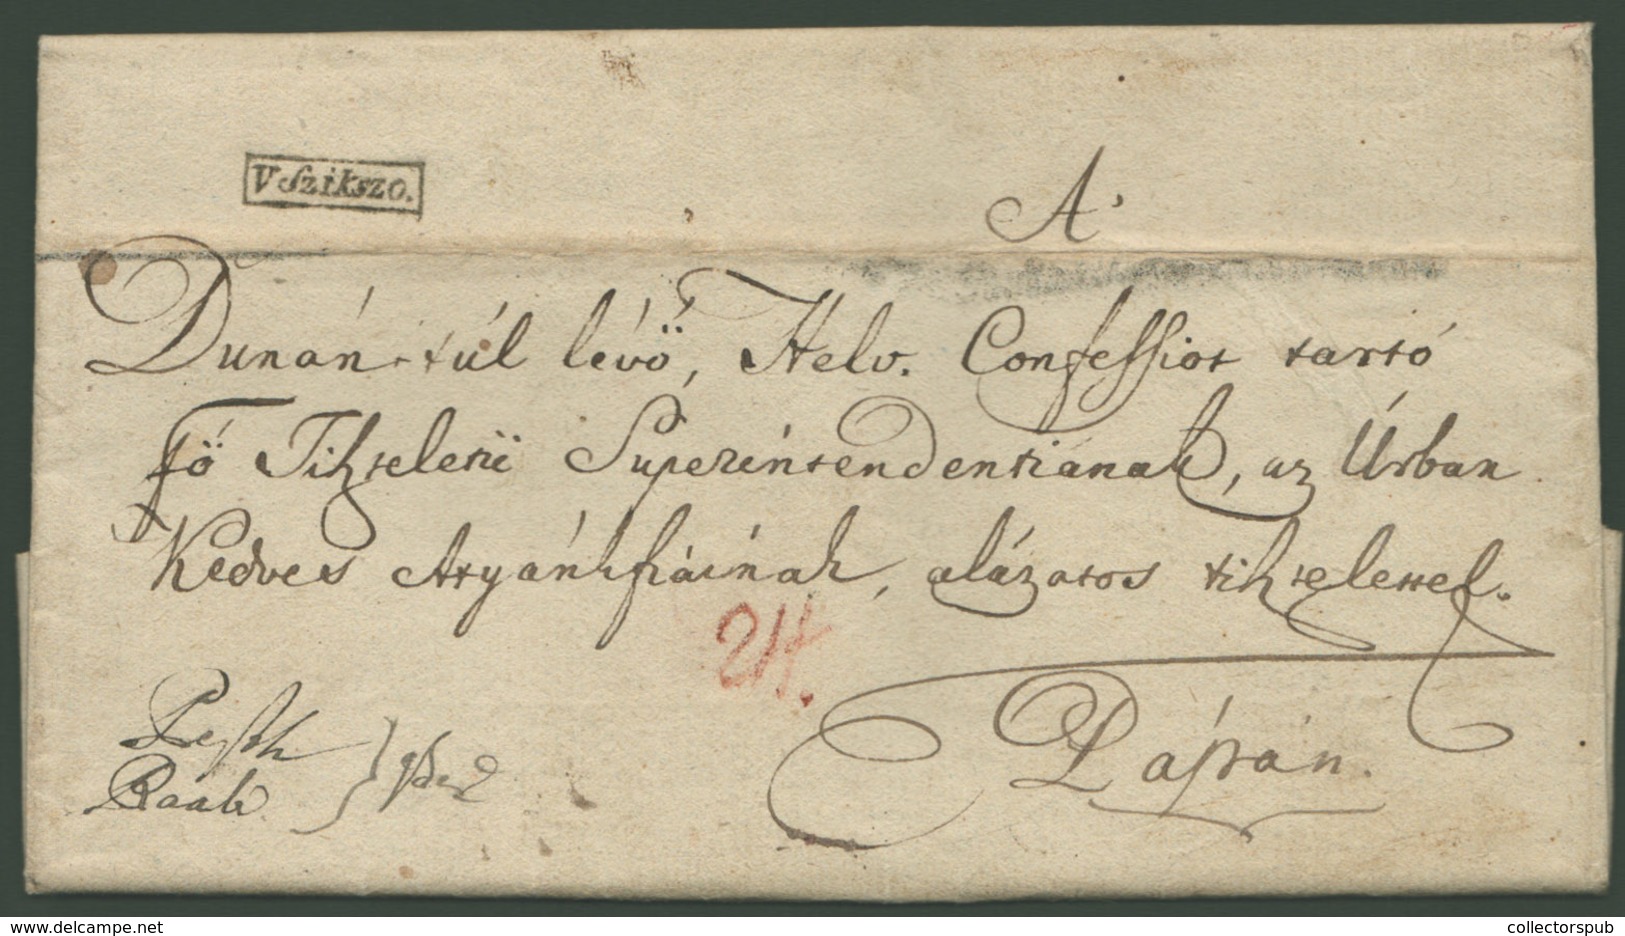 V Szikszo.
A'
Dunán-túl lévő, Helv. Confessiot tartó
Fő Tiszteletű Superintendentiának, az Úrban
Kedves Atyánkfiainak, alázatos tisztelettel.
24.
Pápán.
Pesth
Raab
www.delcampe.net
collectorspub